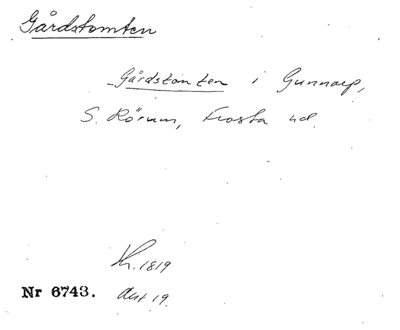 Gårdstomten
Gårdstomten i Gunnarp,
S. Rörum, Frosta hd.
Kr. 1819
Nr 6743. Akt 19.